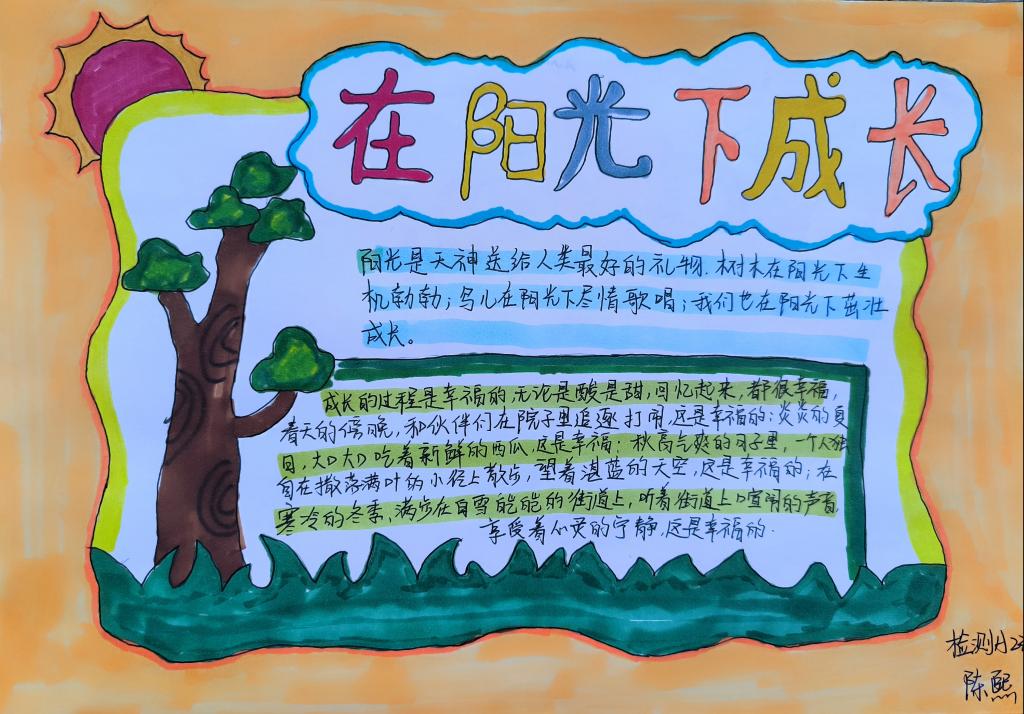 在阳光下成长
阳光是天神送给人类最好的礼物.树木在阳光下生
机勃勃；鸟儿在阳光下尽情歌唱；我们也在阳光下茁壮
成长。
成长的过程是幸福的,无论是酸是甜,回忆起来,都很幸福,
春天的傍晚,和伙伴们在院子里追逐打闹,这是幸福的;炎炎的夏
日,大口大口吃着新鲜的西瓜,这是幸福;秋高气爽的日子里,一个人独
自在撒落满叶的小径上散步,望着湛蓝的天空,这是幸福的;在
寒冷的冬季,满步在白雪皑皑的街道上,听着街道上喧闹的声音,
享受着心灵的宁静,这是幸福的.
检测
陈熙